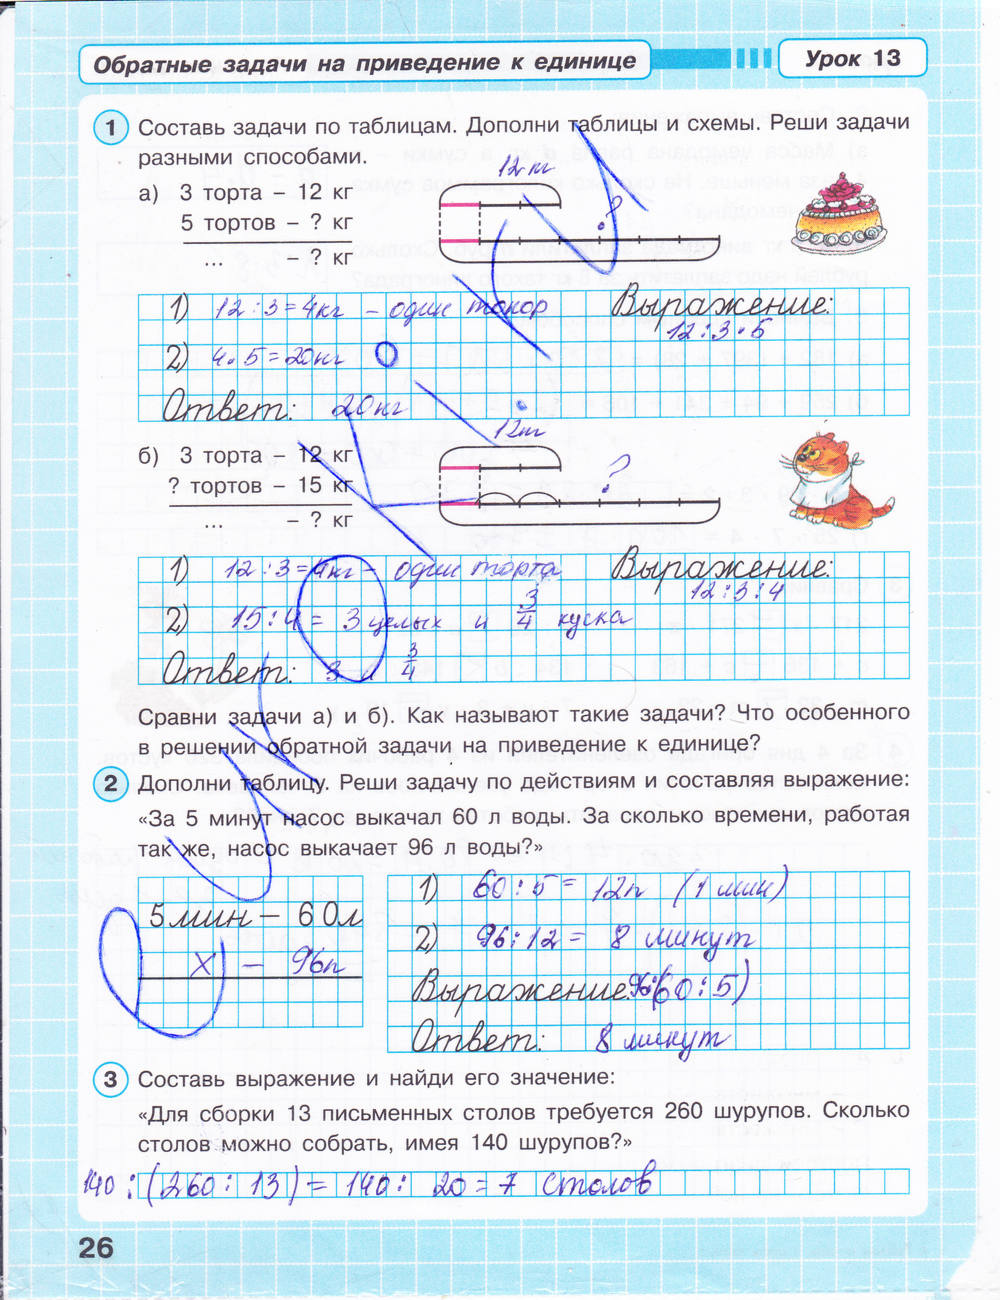 Обратные задачи на приведение к единице
Урок 13
1 Составь задачи по таблицам. Дополни таблицы и схемы. Реши задачи
разными способами.
а) 3 торта – 12 кг
5 тортов – ? кг
... – ? кг
12 кг
?
1) 12 : 3 = 4кг – один токор
Выражение:
12 : 3 • 5
2) 4 • 5 = 20кг
Ответ: 20кг
б) 3 торта – 12 кг
? тортов – 15 кг
... – ? кг
12кг
?
1) 12 : 3 = 4кг – один торта
Выражение:
12 : 3 : 4
2) 15 : 4 = 3 целых и 3/4 куска
Ответ: 3 и 3/4
Сравни задачи а) и б). Как называют такие задачи? Что особенного
в решении обратной задачи на приведение к единице?
2 Дополни таблицу. Реши задачу по действиям и составляя выражение:
«За 5 минут насос выкачал 60 л воды. За сколько времени, работая
так же, насос выкачает 96 л воды?»
5 мин – 60л
х – 96л
1) 60 : 5 = 12л (1 мин)
2) 96 : 12 = 8 минут
Выражение: 96:(60 : 5)
Ответ: 8 минут
3 Составь выражение и найди его значение:
«Для сборки 13 письменных столов требуется 260 шурупов. Сколько
столов можно собрать, имея 140 шурупов?»
140 : (260 : 13) = 140 : 20 = 7 столов
26